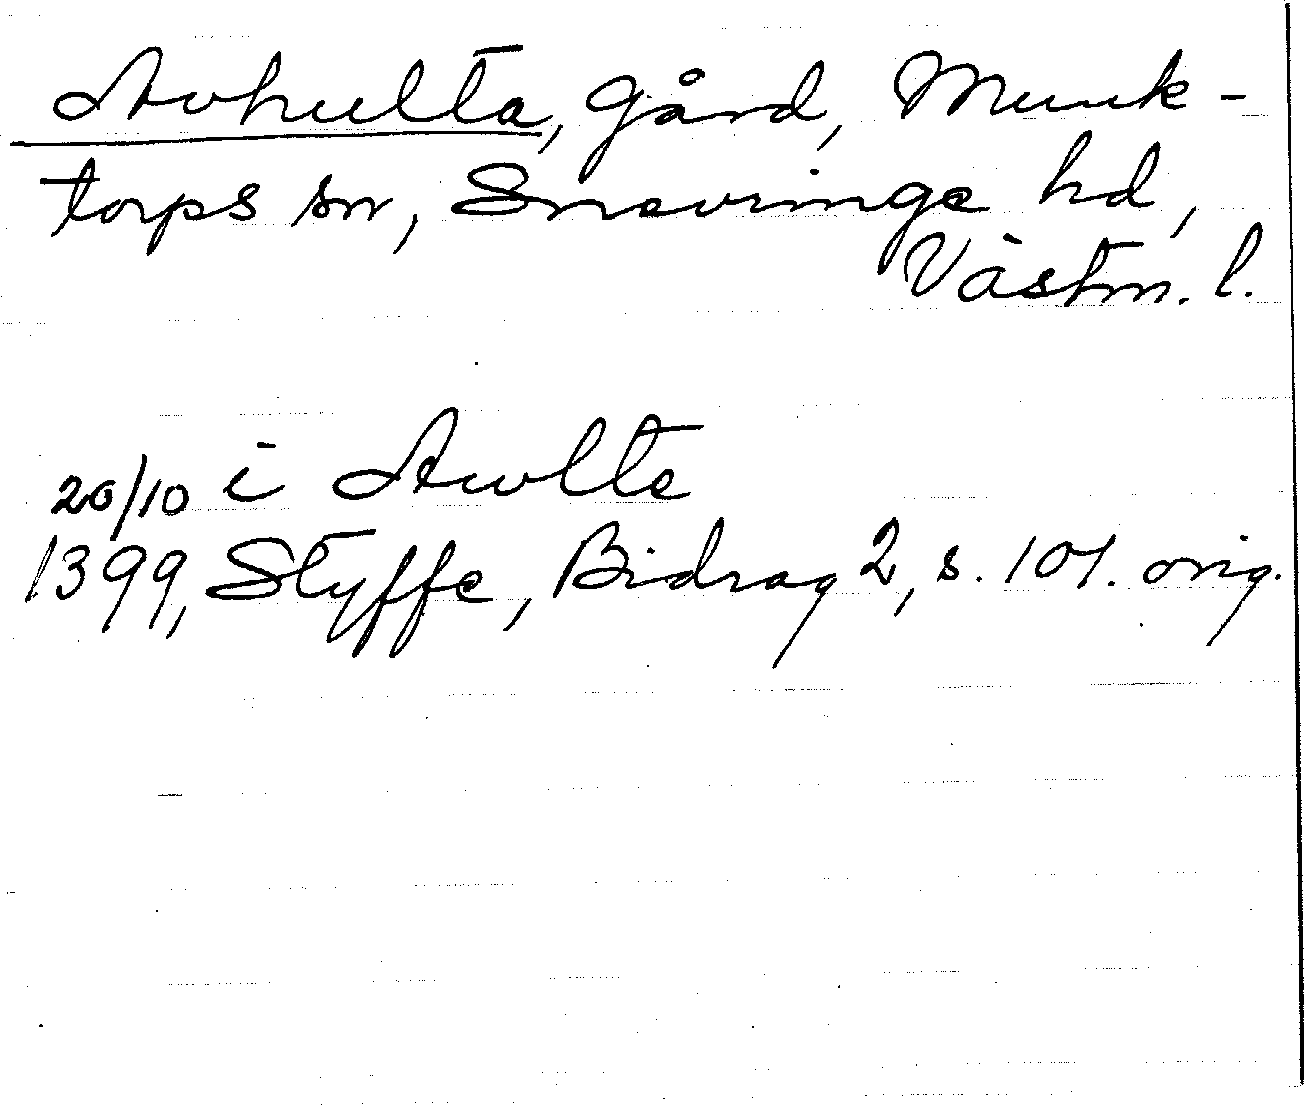 Avhulta, gård, Munk-
torps sn, Snevringe hd,
Västm. l.
20/10 i Awlte
1399, Styffe, Bidrag 2, s. 101. orig.